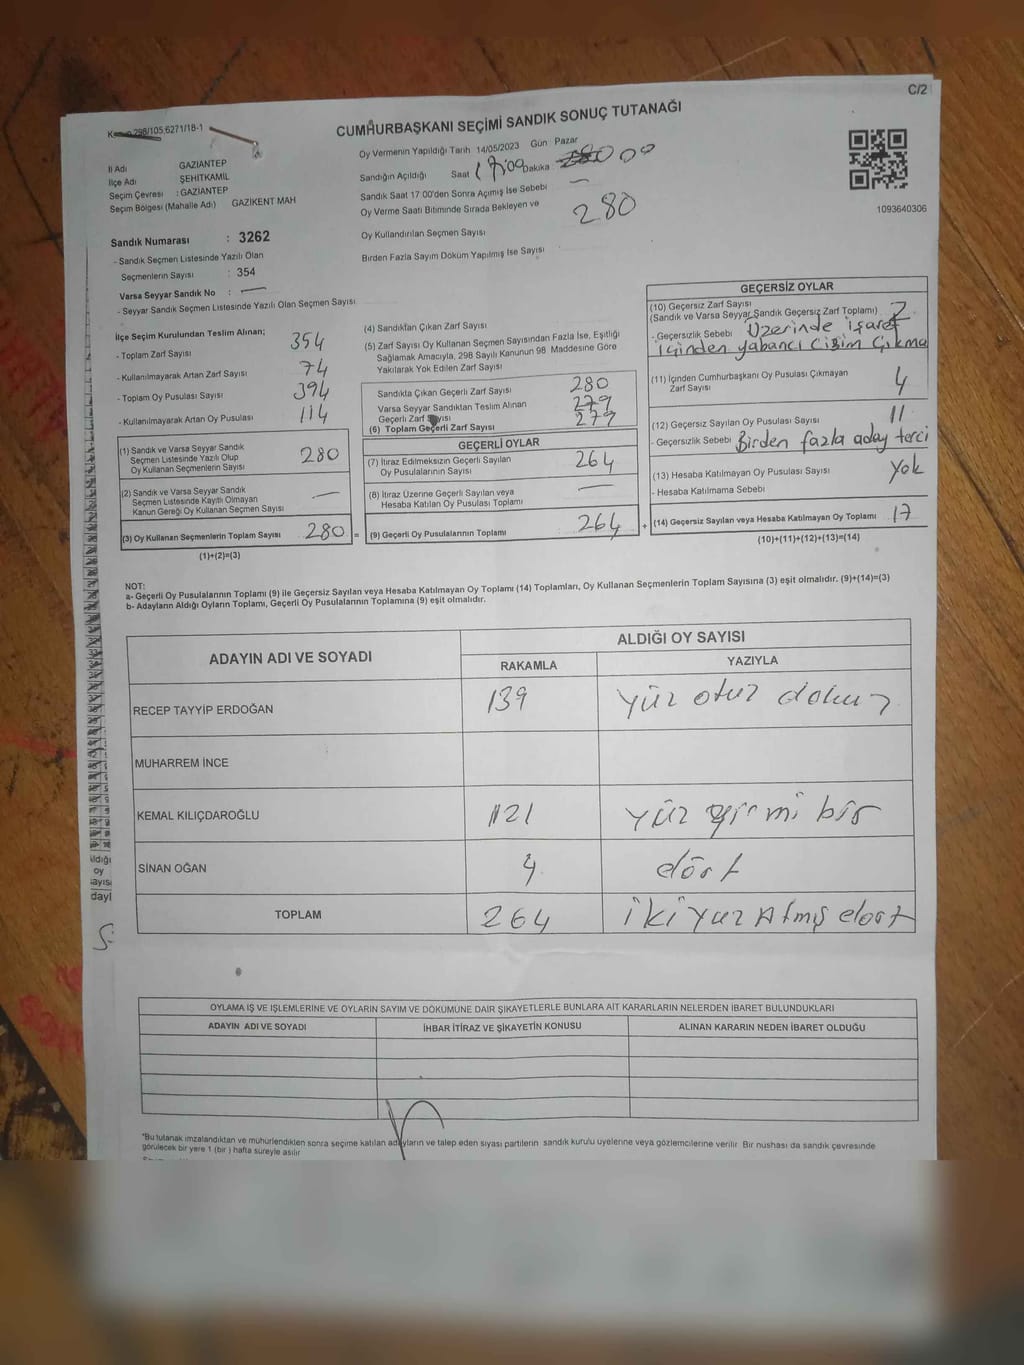 C/2
298/105;6271/18-1
CUMHURBAŞKANI SEÇİMİ SANDIK SONUÇ TUTANAĞI
İl Adı GAZİANTEP
İlçe Adı ŞEHİTKAMİL
Seçim Çevresi : GAZİANTEP
Seçim Bölgesi (Mahalle Adı) GAZİKENT MAH
Oy Vermenin Yapıldığı Tarih 14/05/2023 Gün Pazar
Sandığın Açıldığı Saat 17:00 Dakika 00
Sandık Saat 17 00'den Sonra Açımış İse Sebebi —
Oy Verme Saati Bitiminde Sırada Bekleyen ve
Oy Kullandırılan Seçmen Sayısı 280
Birden Fazla Sayım Döküm Yapılmış İse Sayısı
1093640306
Sandık Numarası : 3262
- Sandık Seçmen Listesinde Yazılı Olan
Seçmenlerin Sayısı : 354
Varsa Seyyar Sandık No : —
- Seyyar Sandık Seçmen Listesinde Yazılı Olan Seçmen Sayısı
İlçe Seçim Kurulundan Teslim Alınan;
- Toplam Zarf Sayısı 354
- Kullanılmayarak Artan Zarf Sayısı 74
- Toplam Oy Pusulası Sayısı 394
- Kullanılmayarak Artan Oy Pusulası 114
(1) Sandık ve Varsa Seyyar Sandık
Seçmen Listesinde Yazılı Olup
Oy Kullanan Seçmenlerin Sayısı 280
(2) Sandık ve Varsa Seyyar Sandık
Seçmen Listesinde Kayıtlı Olmayan
Kanun Gereği Oy Kullanan Seçmen Sayısı —
(3) Oy Kullanan Seçmenlerin Toplam Sayısı 280 =
(1)+(2)=(3)
(4) Sandıktan Çıkan Zarf Sayısı
(5) Zarf Sayısı Oy Kullanan Seçmen Sayısından Fazla İse, Eşitliği
Sağlamak Amacıyla, 298 Sayılı Kanunun 98 Maddesine Göre
Yakılarak Yok Edilen Zarf Sayısı
Sandıkta Çıkan Geçerli Zarf Sayısı 280
Varsa Seyyar Sandıktan Teslim Alınan
Geçerli Zarf Sayısı 279
(6) Toplam Geçerli Zarf Sayısı 279
GEÇERLİ OYLAR
(7) İtiraz Edilmeksizin Geçerli Sayılan
Oy Pusulalarının Sayısı 264
(8) İtiraz Üzerine Geçerli Sayılan veya
Hesaba Katılan Oy Pusulası Toplamı —
(9) Geçerli Oy Pusulalarının Toplamı 264 +
GEÇERSİZ OYLAR
(10) Geçersiz Zarf Sayısı
(Sandık ve Varsa Seyyar Sandık Geçersiz Zarf Toplamı) 2
- Geçersizlik Sebebi Üzerinde işaret
içinden yabancı cisim çıkma
(11) İçinden Cumhurbaşkanı Oy Pusulası Çıkmayan
Zarf Sayısı 4
(12) Geçersiz Sayılan Oy Pusulası Sayısı 11
- Geçersizlik Sebebi Birden fazla aday terci
(13) Hesaba Katılmayan Oy Pusulası Sayısı Yok
- Hesaba Katılmama Sebebi
(14) Geçersiz Sayılan veya Hesaba Katılmayan Oy Toplamı 17
(10)+(11)+(12)+(13)=(14)
NOT:
a- Geçerli Oy Pusulalarının Toplamı (9) ile Geçersiz Sayılan veya Hesaba Katılmayan Oy Toplamı (14) Toplamları, Oy Kullanan Seçmenlerin Toplam Sayısına (3) eşit olmalıdır. (9)+(14)=(3)
b- Adayların Aldığı Oyların Toplamı, Geçerli Oy Pusulalarının Toplamına (9) eşit olmalıdır.
ADAYIN ADI VE SOYADI
ALDIĞI OY SAYISI
RAKAMLA YAZIYLA
RECEP TAYYİP ERDOĞAN 139 yüz otuz dokuz
MUHARREM İNCE
KEMAL KILIÇDAROĞLU 121 yüz yirmi bir
SİNAN OĞAN 4 dört
TOPLAM 264 iki yüz Atmış dört
ıldığı
oy
ayısı
dayl
OYLAMA İŞ VE İŞLEMLERİNE VE OYLARIN SAYIM VE DÖKÜMÜNE DAİR ŞİKAYETLERLE BUNLARA AİT KARARLARIN NELERDEN İBARET BULUNDUKLARI
ADAYIN ADI VE SOYADI İHBAR İTİRAZ VE ŞİKAYETİN KONUSU ALINAN KARARIN NEDEN İBARET OLDUĞU
*Bu tutanak imzalandıktan ve mühürlendikten sonra seçime katılan adayların ve talep eden siyasi partilerin sandık kurulu üyelerine veya gözlemcilerine verilir Bir nüshası da sandık çevresinde
görülecek bir yere 1 (bir) hafta süreyle asılır